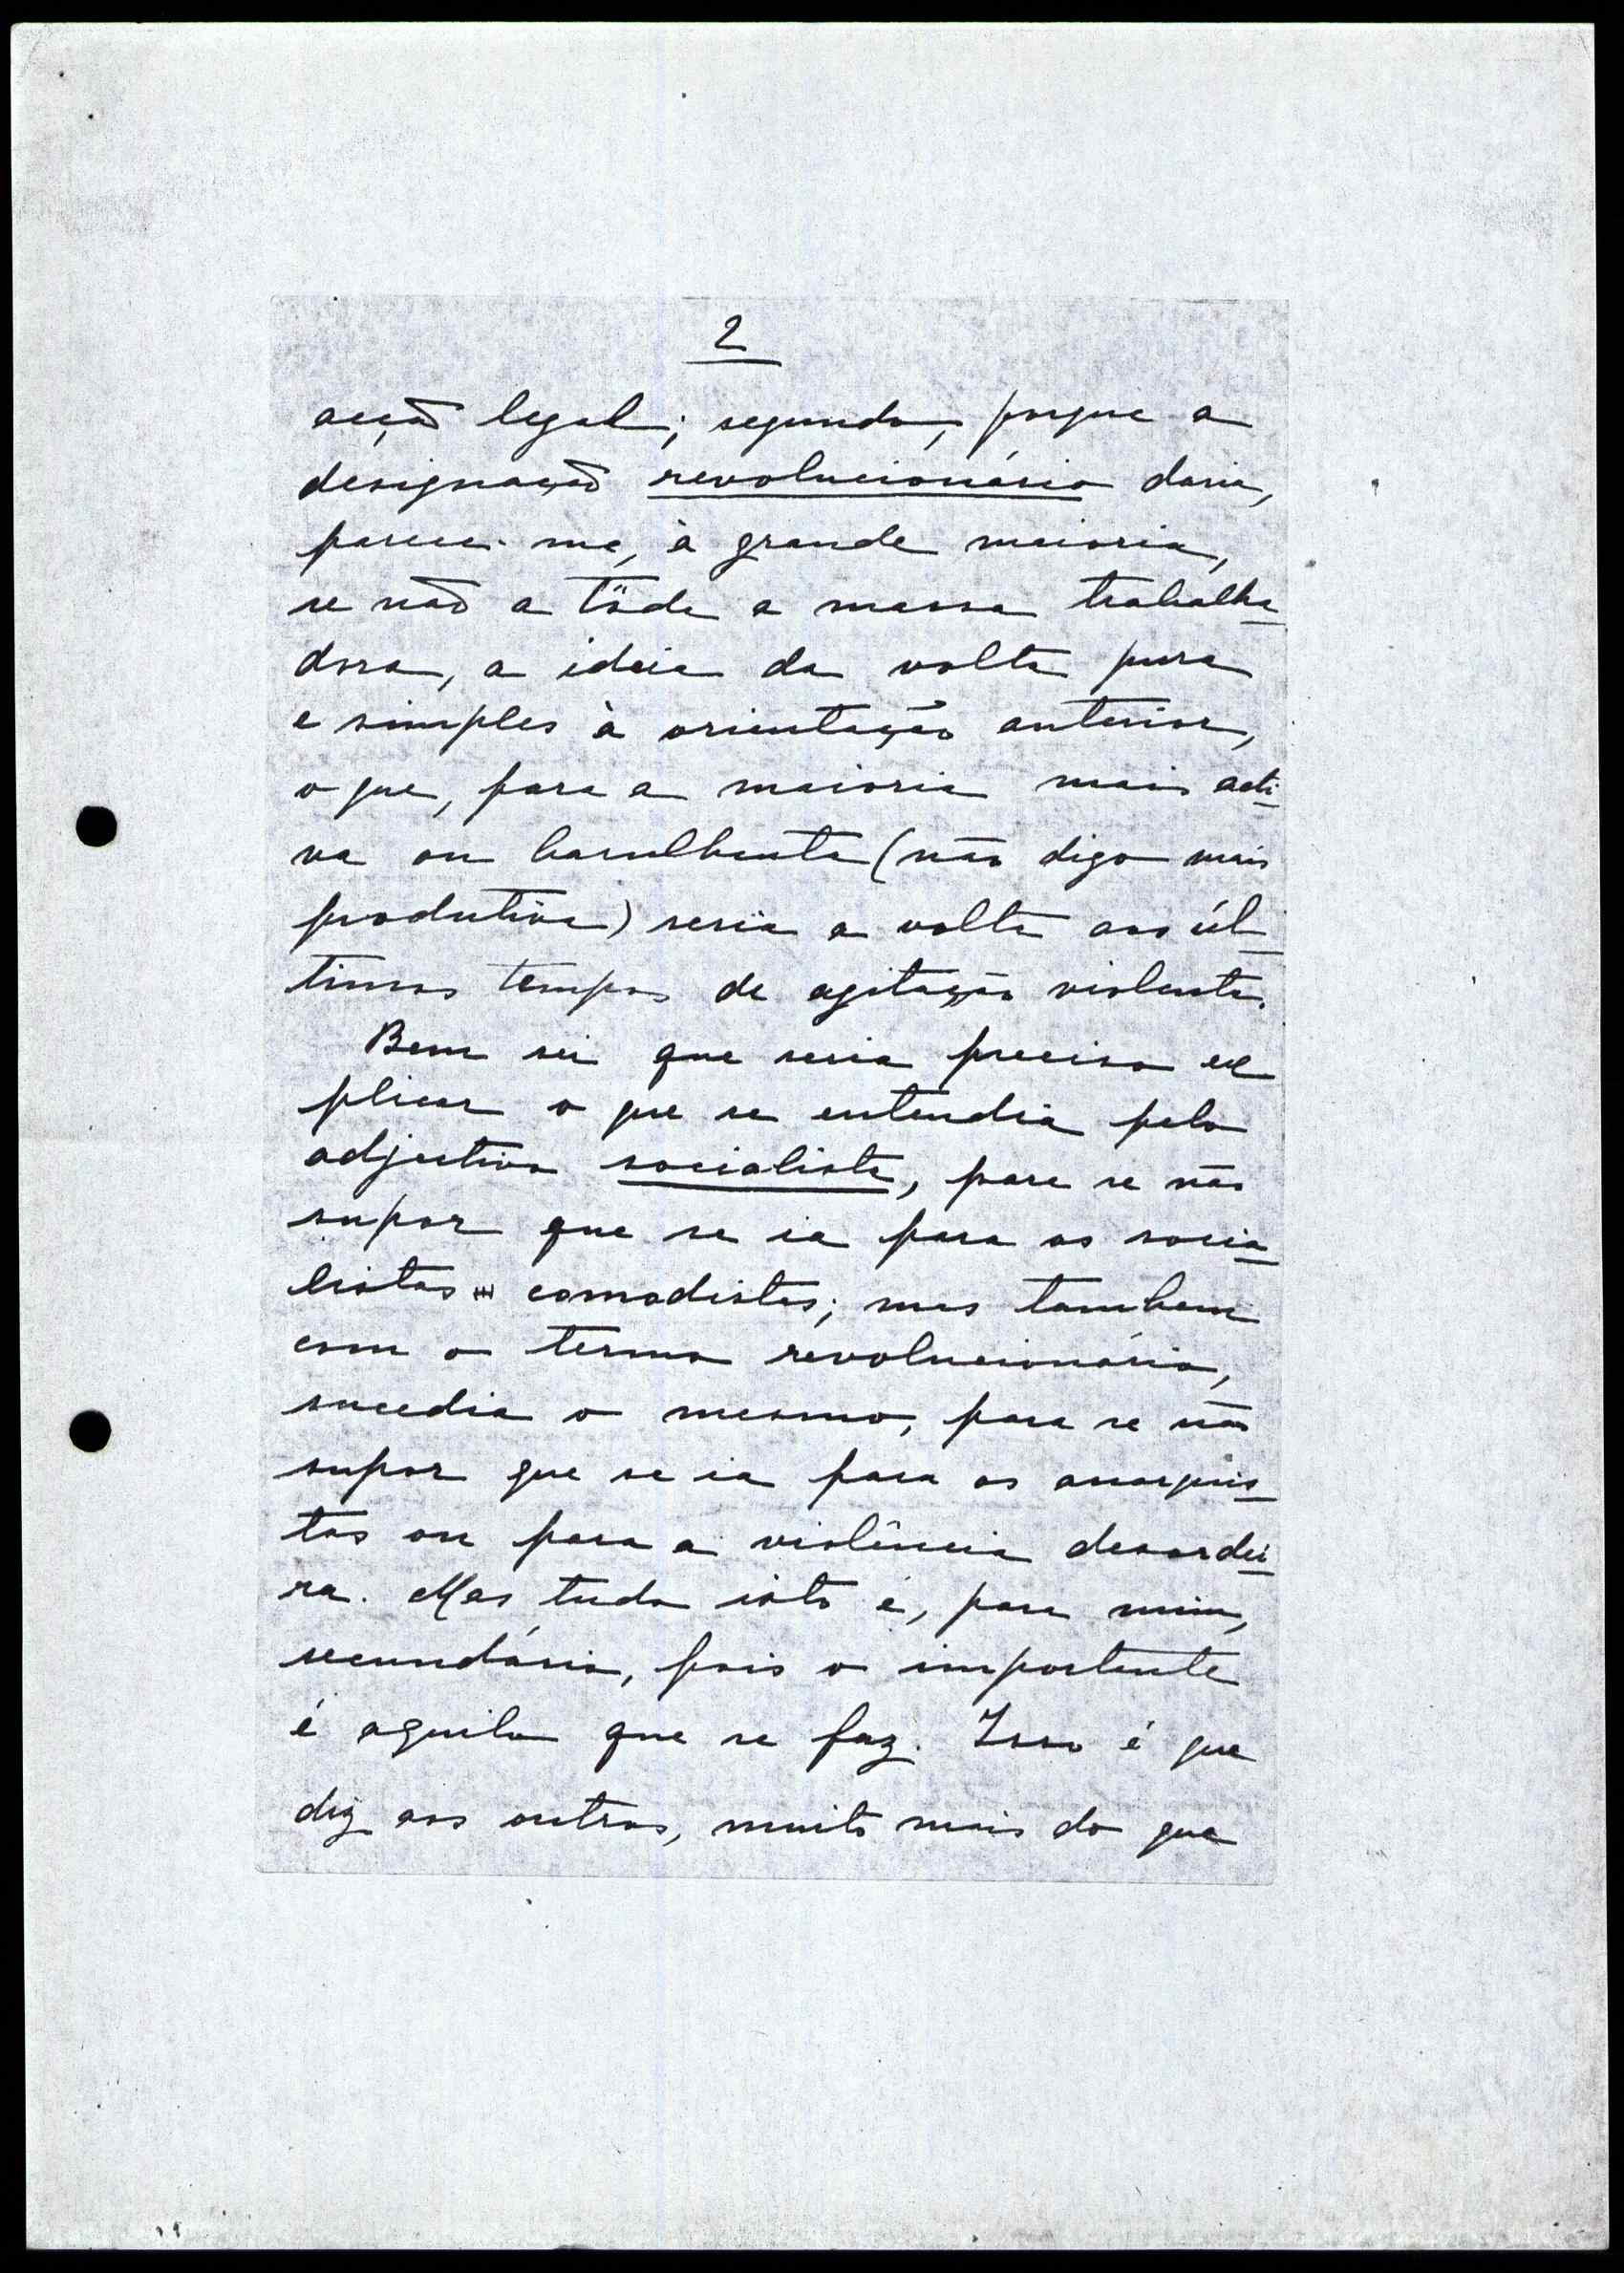 2
acção legal; segundo, porque a
designação revolucionário daria,
parece-me, à grande maioria,
se não a tôda a massa trabalha-
dora, a ideia da volta pura
e simples à orientação anterior,
o que, para a maioria mais acti-
va ou barulhenta (não digo mais
produtiva) seria a volta aos úl-
timos tempos de agitação violenta.
Bem sei que seria preciso ex
plicar o que se entendia pelo
adjectivo socialista, para se não
supor que se ia para os socia-
listas comodistas; mas tambem
com o termo revolucionário,
sucedia o mesmo, para se não
supor que se ia para os anarquis-
tas ou para a violência desordei-
ra. Mas tudo isto é, para mim,
secundário, pois o importante
é aquilo que se faz. Isso é que
diz aos outros, muito mais do que